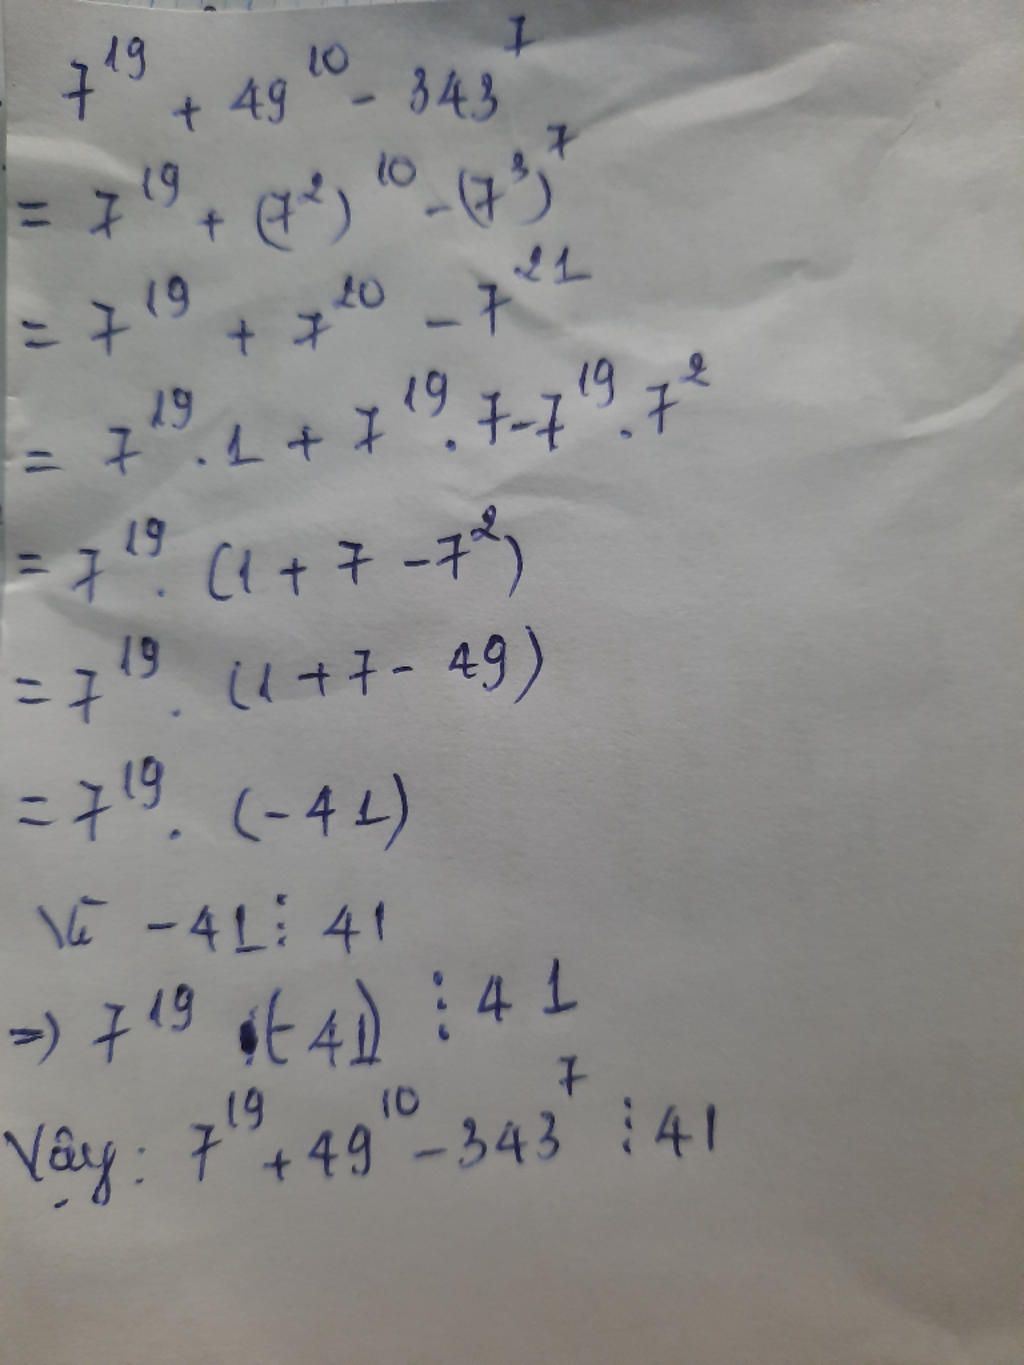 7¹⁹ + 49¹⁰ - 343⁷
= 7¹⁹ + (7²)¹⁰ - (7³)⁷
= 7¹⁹ + 7²⁰ - 7²¹
= 7¹⁹ . 1 + 7¹⁹ . 7 - 7¹⁹ . 7²
= 7¹⁹ . (1 + 7 - 7²)
= 7¹⁹ . (1 + 7 - 49)
= 7¹⁹ . (-41)
Vì -41 ⋮ 41
=> 7¹⁹ .(-41) ⋮ 41
Vậy: 7¹⁹ + 49¹⁰ - 343⁷ ⋮ 41